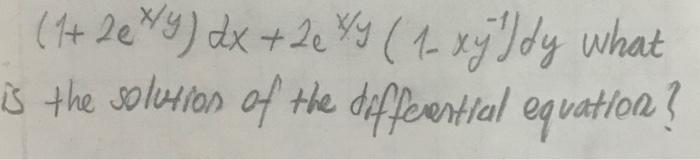 (1+ 2e^x/y) dx + 2e^x/y (1- xy^-1)dy what
is the solution of the differential equation?